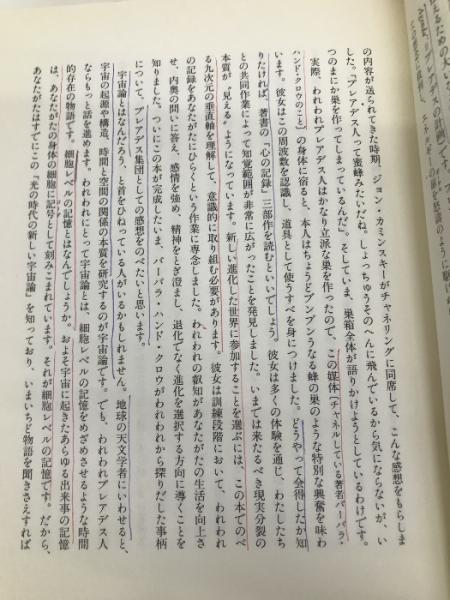 の内容が送られてきた時期、ジョン・カミンスキーがチャネリングに同席して、こんな感想をもらしま
した。「プレアデス人って蜜蜂みたいだね。しょっちゅうそのへんに飛んでいるから気にならないが、い
つのまにか巣を作ってしまっているんだ」。そしていま、巣箱全体が語りかけようとしているわけです。
実際、われわれプレアデス人はかなり立派な巣を作ったので、この媒体(チャネルしている著者バーバラ・
ハンド・クロウのこと)の身体に宿ると、本人はちょうどブンブンうなる蜂の巣のような特別な興奮を味わ
います。彼女はこの周波数を認識し、道具として使うすべを身につけました。どうやって会得したか知
りたければ、著書の『心の記録』三部作を読むといいでしょう。彼女は多くの体験を通じ、わたしたち
との共同作業によって知覚範囲が非常に広がったことを発見しました。いまでは来たるべき現実分裂の
本質が〝見える〟ようになっています。新しい進化した世界に参加することを選ぶには、この本でのべ
る九次元の垂直軸を理解して、意識的に取り組む必要があります。彼女は訓練段階において、われわれ
の記録をあなたがたにひらくという作業に専念しました。われわれの叡知があなたがたの生活を向上さ
せ、内奥の問いに答え、感情を強め、精神をとぎ澄まし、退化でなく進化を選択する方向に導くことを
知りました。ついにこの本が完成したいま、バーバラ・ハンド・クロウがわれわれから探りだした事柄
について、プレアデス集団としての感想をのべたいと思います。
宇宙論とはなんだろう、と首をひねっている人がいるかもしれません。地球の天文学者にいわせると、
宇宙の起源や構造、時間と空間の関係の本質を研究するのが宇宙論です。でも、われわれプレアデス人
ならもっと話を進めます。われわれにとって宇宙論とは、細胞レベルの記憶をめざめさせるような時間
的存在の物語です。細胞レベルの記憶とはなんでしょうか。およそ宇宙に起きたあらゆる出来事の記憶
は、あなたがたの身体の細胞に記号として刻みこまれています。それが細胞レベルの記憶です。だから、
あなたがたはすでにこの「光の時代の新しい宇宙論」を知っており、いまいちど物語を聞きさえすれば